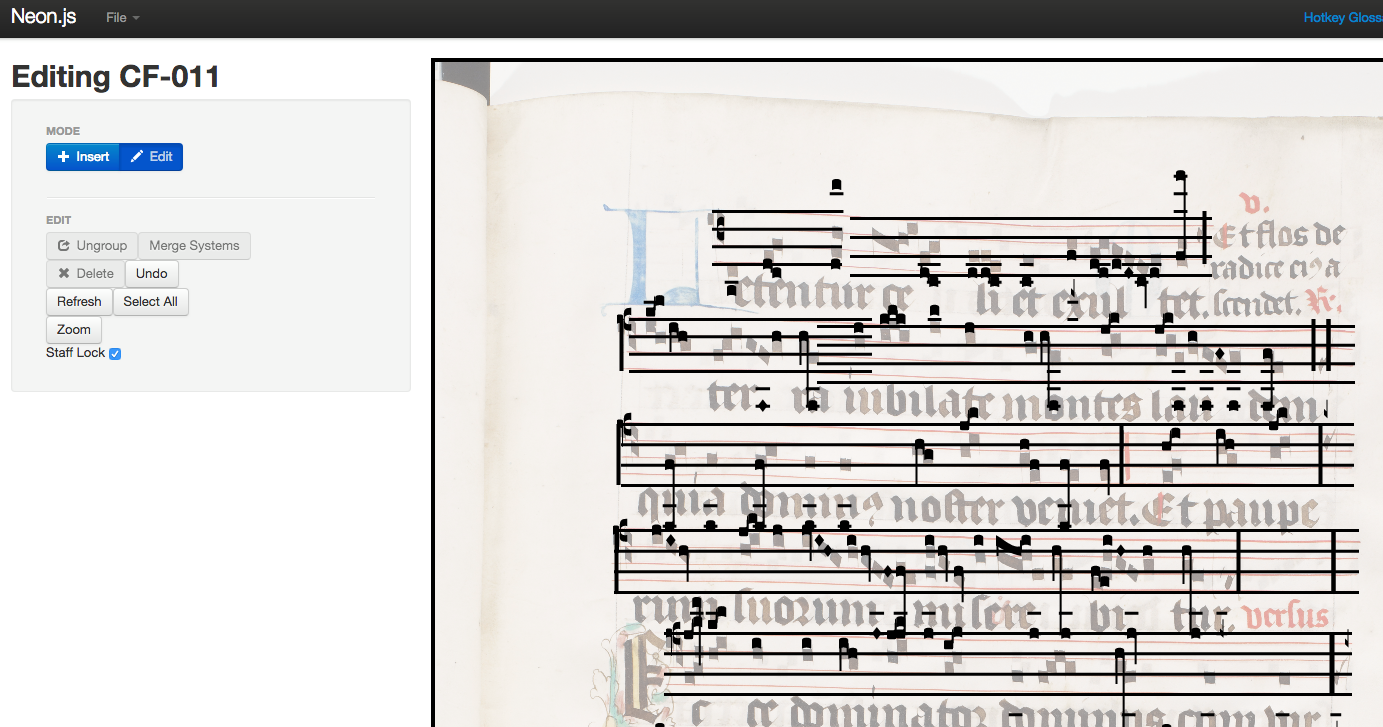 Neon.js File Hotkey Gloss
Editing CF-011
MODE
Insert Edit
EDIT
Ungroup Merge Systems
Delete Undo
Refresh Select All
Zoom
Staff Lock
v.
Et flos de
radice ei a
Letentur ce li et exul tet. scendet. R.
ter ra iubilate montes lau dem
quia dominus noster veniet. Et paupe
rum suorum misere bi tur. versus
E c ce dominator dominus cum